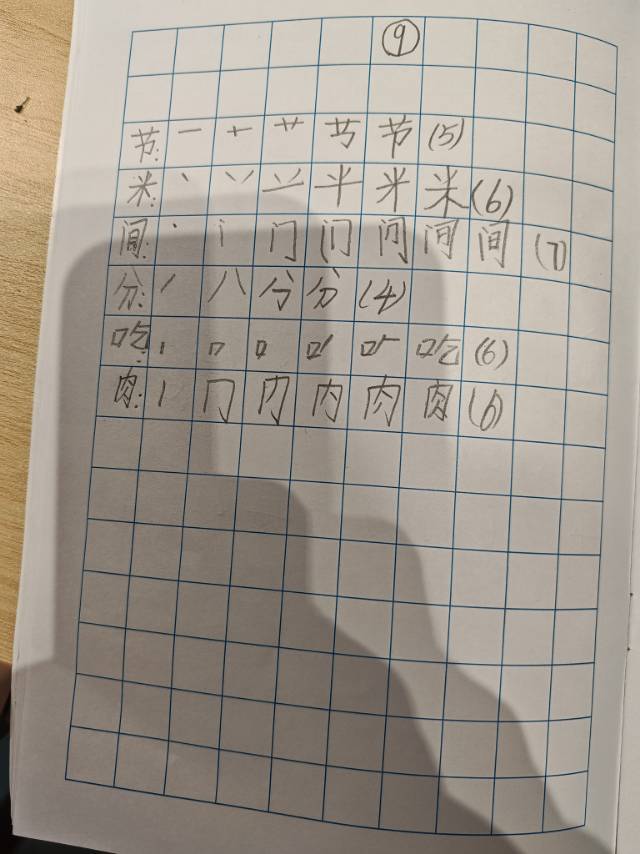 ⑨
节: 一 十 艹 节 节 (5)
米: 丶 丷 䒑 半 米 米 (6)
间: 丶 丨 门 门 问 间 间 (7)
分: 丿 八 分 分 (4)
吃: 丨 口 口 吃 (6)
肉: 丨 冂 内 内 肉 肉 (6)